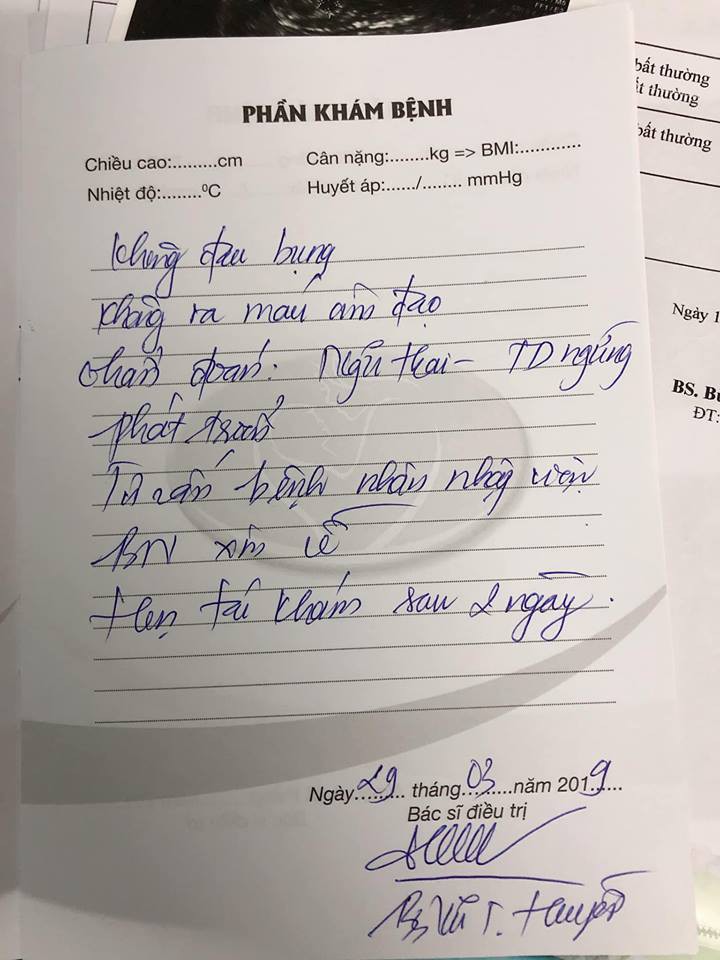 bất thường
bất thường
bất thường
PHẦN KHÁM BỆNH
Chiều cao:.........cm Cân nặng:........kg => BMI:............
Nhiệt độ:........⁰C Huyết áp:....../........ mmHg
Không đau bụng
Không ra máu âm đạo
Chẩn đoán: Nghi thai - TD ngừng
phát triển
Tư vấn bệnh nhân nhập viện
BN xin về
Hẹn tái khám sau 2 ngày.
Ngày 1
BS. Bù
ĐT:
Ngày 29 tháng 03 năm 2019
Bác sĩ điều trị
Bs Vũ T.